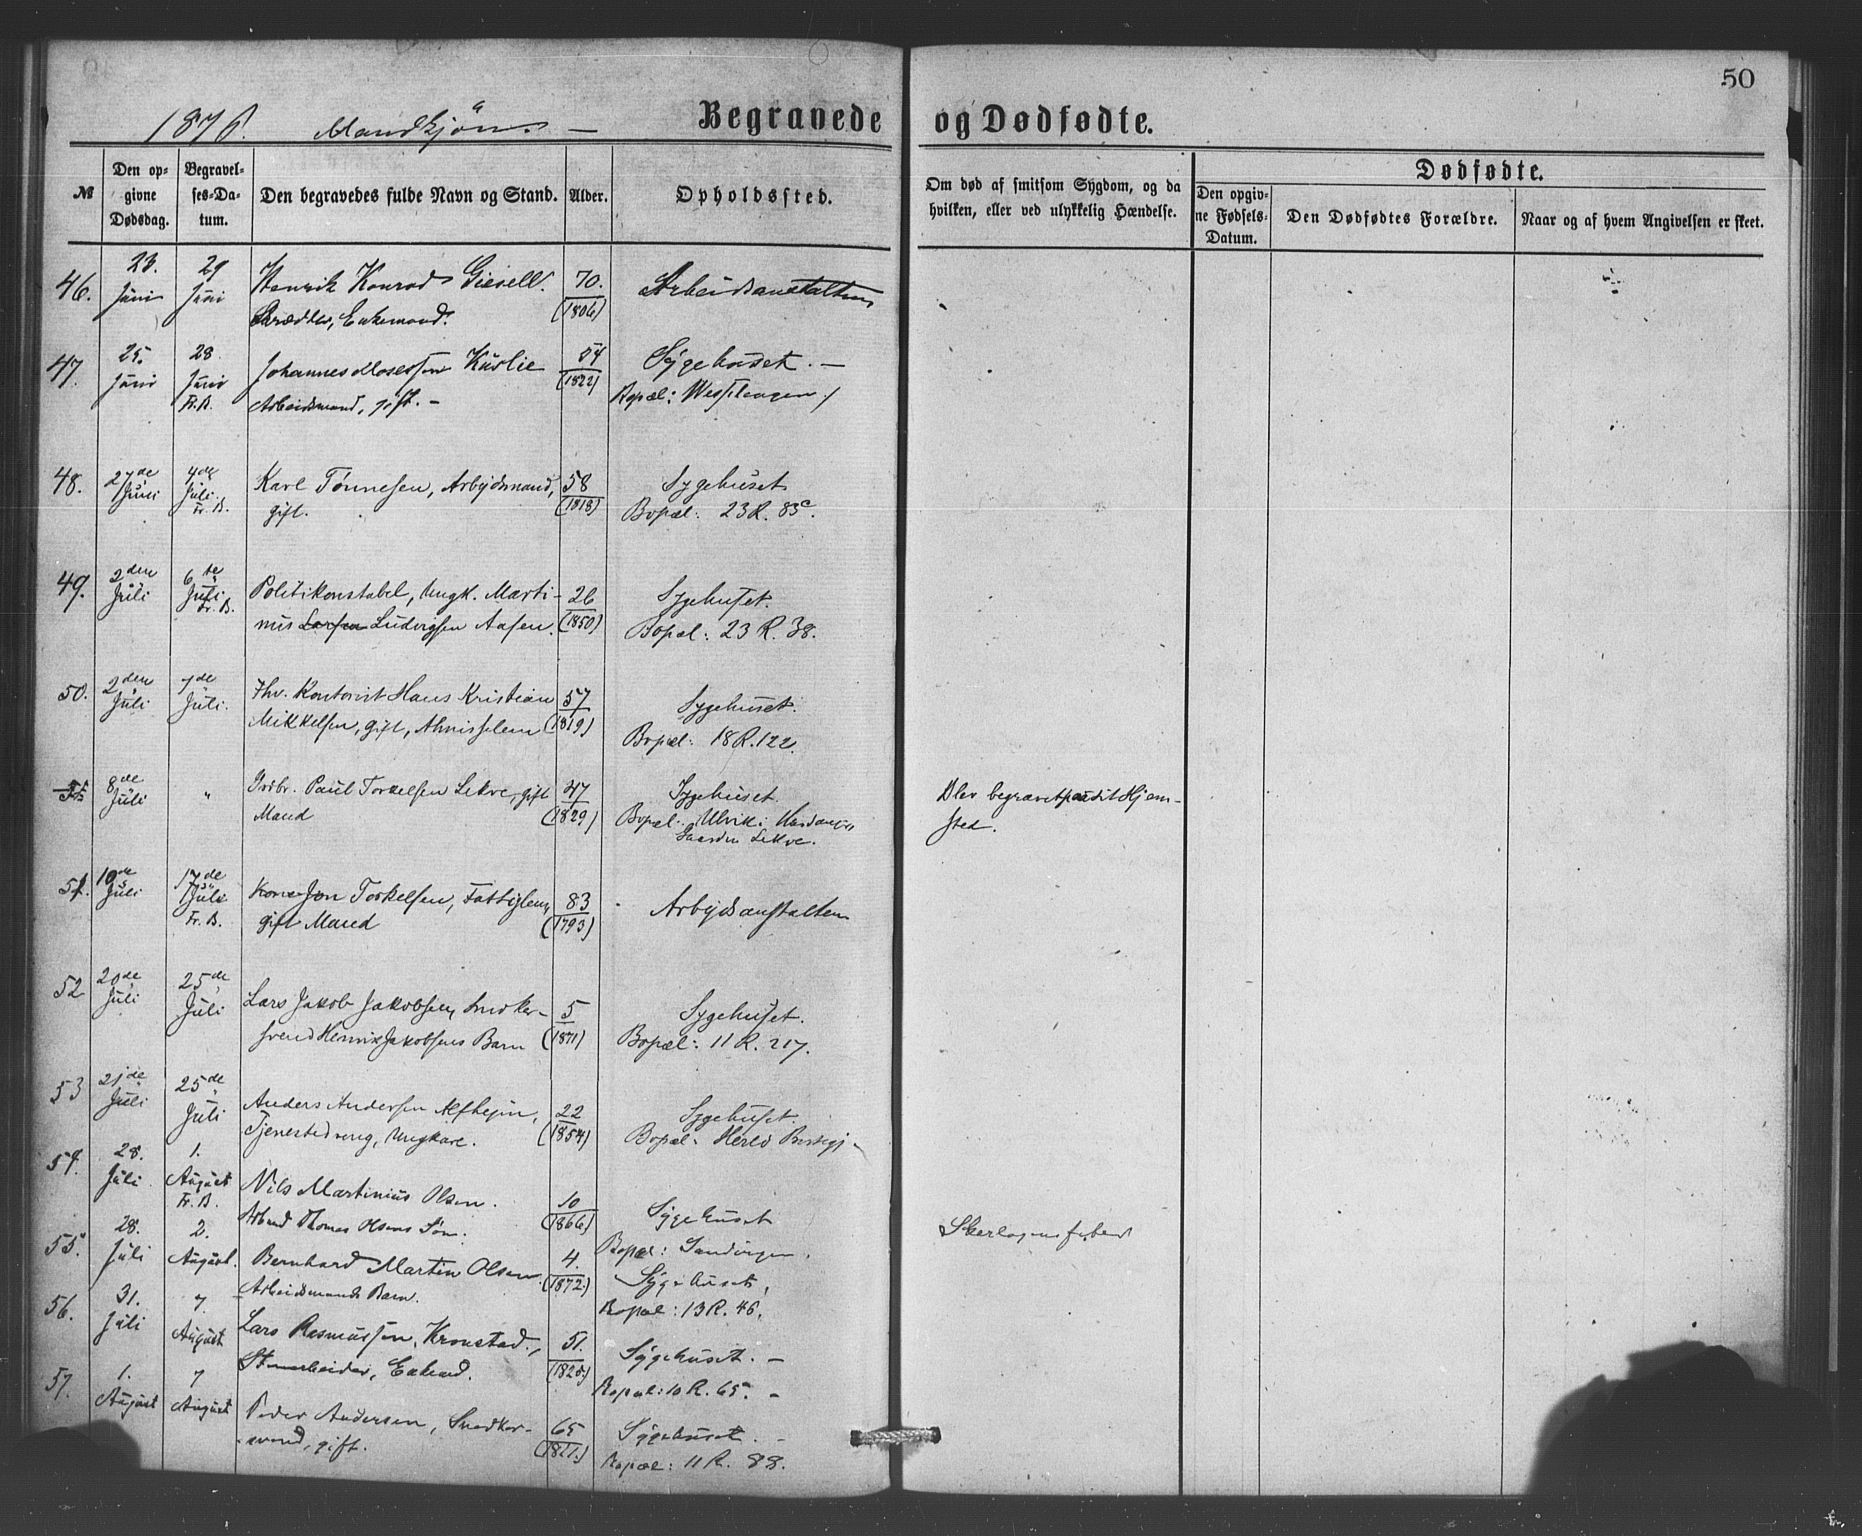 50
1876. Mandkjön. — Begravede og Dødfødte.
№
Den opgivne Dødsdag.
Begravelses-Datum.
Den begravedes fulde Navn og Stand.
Alder.
Opholdssted.
Om død af smitsom Sygdom, og da hvilken, eller ved ulykkelig Hændelse.
Dødfødte.
Den opgivne Fødsels-Datum.
Den Dødfødtes Forældre.
Naar og af hvem Angivelsen er skeet.
46. 23. Juni 29 Juni Henrik Konrad Giesell. 70. Arbeidsanstalten
Enkemand. (1806)
47. 25. Juni 28 Juni Fr. B. Johannes Mosessen 54 Sygehuset. —
Arbeidsmand, gift. — (1822) Bopæl:
48. 27de Juni 4de Juli Fr. B. Karl Tønnesen, Arbejdsmand, 58 Sygehuset
gift. (1818) Bopæl: 23 R. 83c.
49. 2den Juli 6te Juli Fr. B. Politikonstabel, Ungk. Marti- 26 Sygehuset.
nus Larsen Ludvigsen Aasen. (1850) Bopæl: 23 R. 38.
50. 2den Juli 7de Juli. Fhv. Kontorist Hans Kristian 57 Sygehuset.
Mikkelsen, gift, Almisselem (1819) Bopæl: 18 R. 122.
51 8de Juli " Grdbr. Paul Torkelsen Lekve, gift 47 Sygehuset. Blev begravet paa sit Hjem-
Mand (1829) Bopæl: Ulvik i Hardanger sted.
Gaarden Lekve.
51. 10de Juli 17de Juli Fr. B. Jon Torkelsen, Fattiglem, 83 Arbejdsanstalten
gift Mand (1793)
52 20de Juli 25de Juli Lars Jakob Jakobsen, Snedker- 5 Sygehuset.
svend Henrik Jakobsens Barn (1871) Bopæl: 11 R. 217.
53 21de Juli 25de Juli Anders Andersen 22 Sygehuset.
Tjenestedreng, Ungkarl. (1854) Bopæl:
54. 28. Juli 1. August Fr. B. Nils Martinius Olsen. 10 Sygehuset
Arbmd Thomas Olsens Søn. (1866) Bopæl: Sandvigen. Skarlagensfeber
55. 28. Juli 2. August. Bernhard Martin Olsen 4. Sygehuset,
Arbeidsmands Barn. (1872.) Bopæl: 13 R. 46.
56. 31. Juli 7. August Lars Rasmussen Kronstad, 51. Sygehuset. —
Stenarbeider, Enkemd. (1825) Bopæl: 10 R. 65. —
57. 1. August 7 August Peder Andersen, Snedker- 65 Sygehuset. —
svend, gift. (1811.) Bopæl: 11 R. 88.